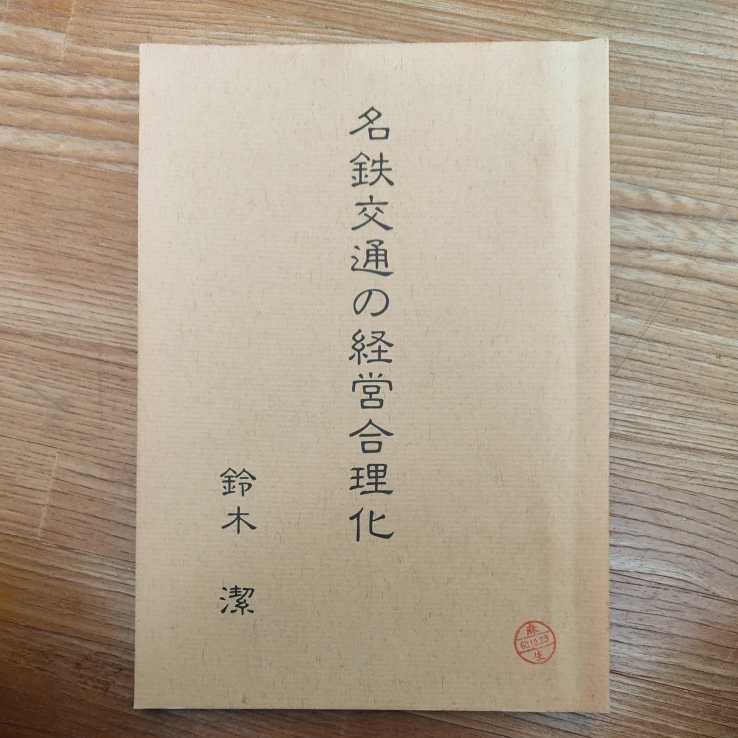 名鉄交通の経営合理化
鈴木 潔
麻
生